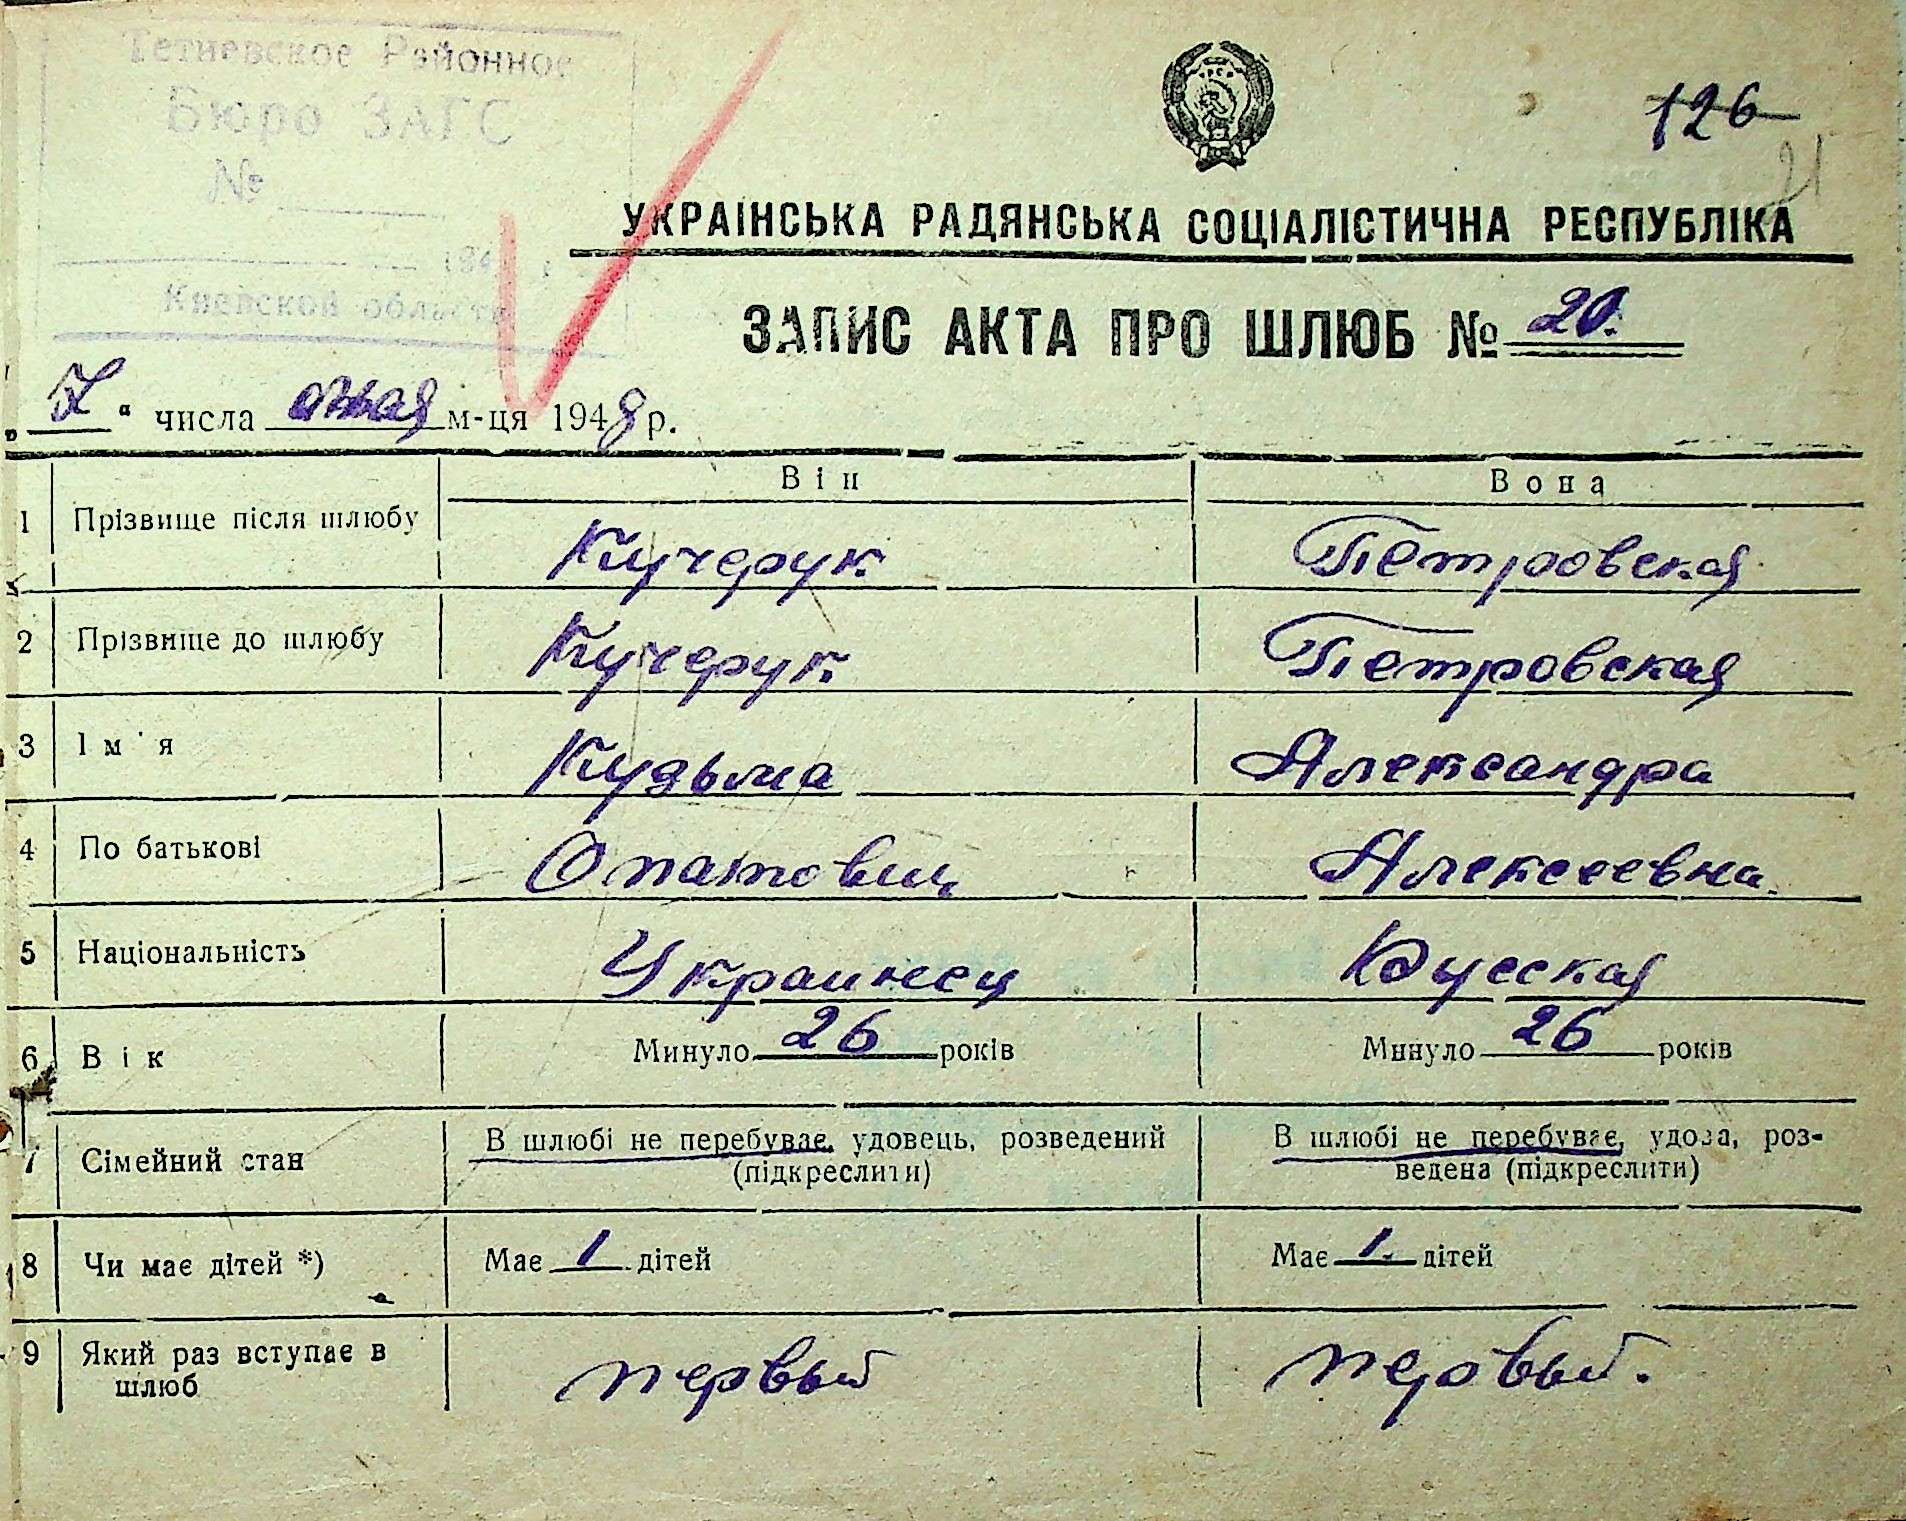 Тетиевское Районное
Бюро ЗАГС
№
194
Киевской области
УРСР
126
21
УКРАЇНСЬКА РАДЯНСЬКА СОЦІАЛІСТИЧНА РЕСПУБЛІКА
ЗАПИС АКТА ПРО ШЛЮБ № 20.
„7“ числа мая м-ця 1948 р.
Він Вона
1 Прізвище після шлюбу Кучерук Петровская
2 Прізвище до шлюбу Кучерук Петровская
3 Ім'я Кузьма Александра
4 По батькові Опатович Алексеевна.
5 Національність Украинец Русская
6 Вік Минуло 26 років Минуло 26 років
7 Сімейний стан В шлюбі не перебуває, удовець, розведений В шлюбі не перебуває, удова, роз-
(підкреслити) ведена (підкреслити)
8 Чи має дітей *) Має 1 дітей Має 1. дітей
9 Який раз вступає в первый первый.
шлюб